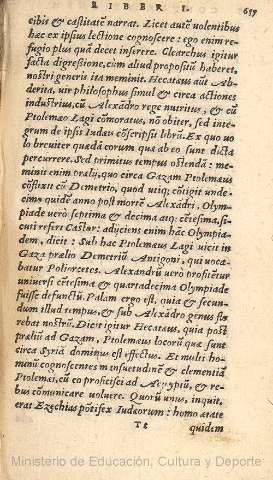 LIBER I. 657
cibis & castitate narrat. Licet autẽ volentibus
hac ex ipsius lectione cognoscere: ego enim re-
fugio plus quā decet inserere. Clearchus igitur
facta digressione, cùm aliud proposiũ haberet,
nostri generis ita meminit. Hecateus aũt Ab-
derita, vir philosophus simul & circa actiones
industrius, cũ Alexādro rege nutritus, & cũ
Ptolemæo Lagi cõmoratus, nõ obiter, sed inte-
grum de ipsis Iudæis cõscripsit librũ. Ex quo vo
lo breuiter quædā corum qua ab eo sunt dicta
percurrere. Sed primitus tempus ostendā: me-
minit enim prælij, quo circa Gazam Ptolemæus
cõflixit cũ Demetrio, quod vtiq; cõtigit vnde-
cimo quidē anno post mortē Alexādri, Olym-
piade verò septima & decima atq; cētesima, si-
cut refert Castor: adyciens enim hāc Olympia-
dem, dicit: Sub hac Ptolemæus Lagi vicit in
Gaza prælio Demetriũ Antigoni, qui voca-
batur Poliorcetes. Alexandrũ verò profitētur
vniuersi cētesima & quartadecima Olympiade
fuisse defunctũ. Palam ergo est, quia & secun-
dum illud tempus, & sub Alexādro genus flo
rebat nostrũ. Dicit igitur Hecatæus, quia post
præliũ ad Gazam, Ptolemæus locorũ quæ sunt
circa Syriā dominus est effectus. Et multi ho-
minũ cognoscentes mãsuetudinē & clementiā
Ptolemæi, cũ eo proficisci ad Aegyptũ, & re-
bus cõmunicare voluere. Quorũ vnus, inquit,
erat Ezechias põtifex Iudæorum: homo ætate
Tt quidem
Ministerio de Educación, Cultura y Deporte